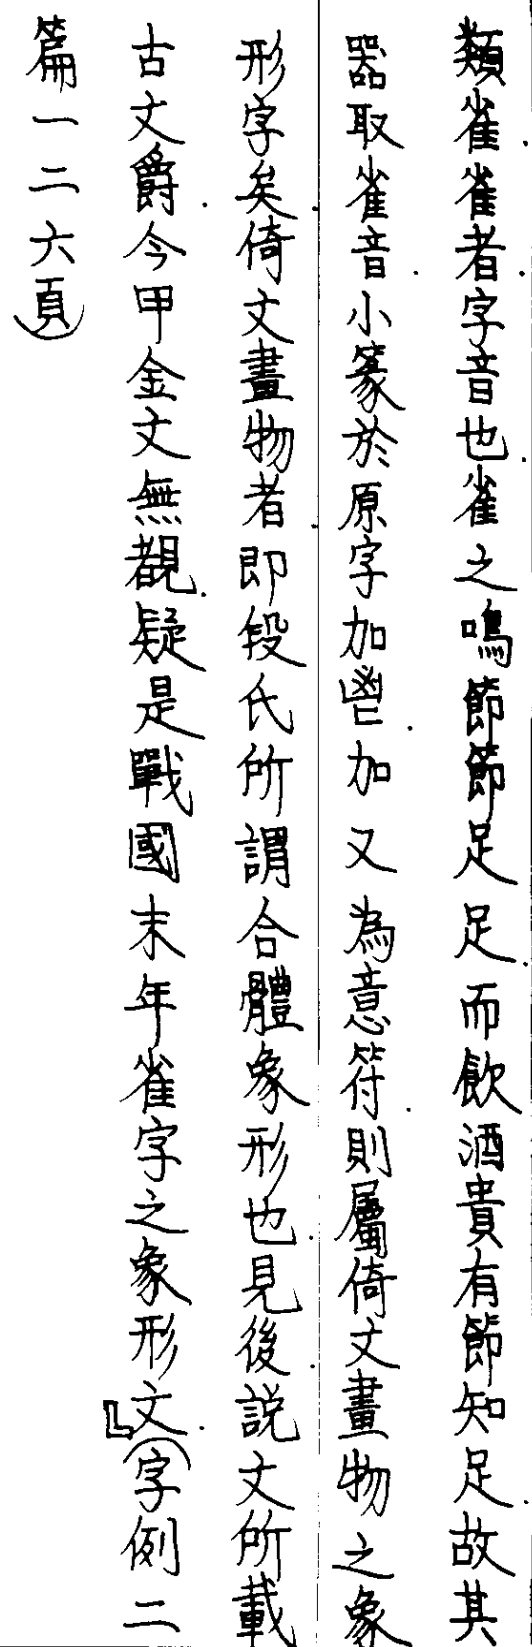 類雀雀者字音也.雀之鳴節節足足.而飲酒貴有節知足.故其
器取雀音.小篆於原字加鬯.加又為意符.則屬倚文畫物之象
形字矣.倚文畫物者.即段氏所謂合體象形也.見後.説文所載
古文爵.今甲金文無覩.疑是戰國末年雀字之象形文.』（字例二
篇一二六頁）